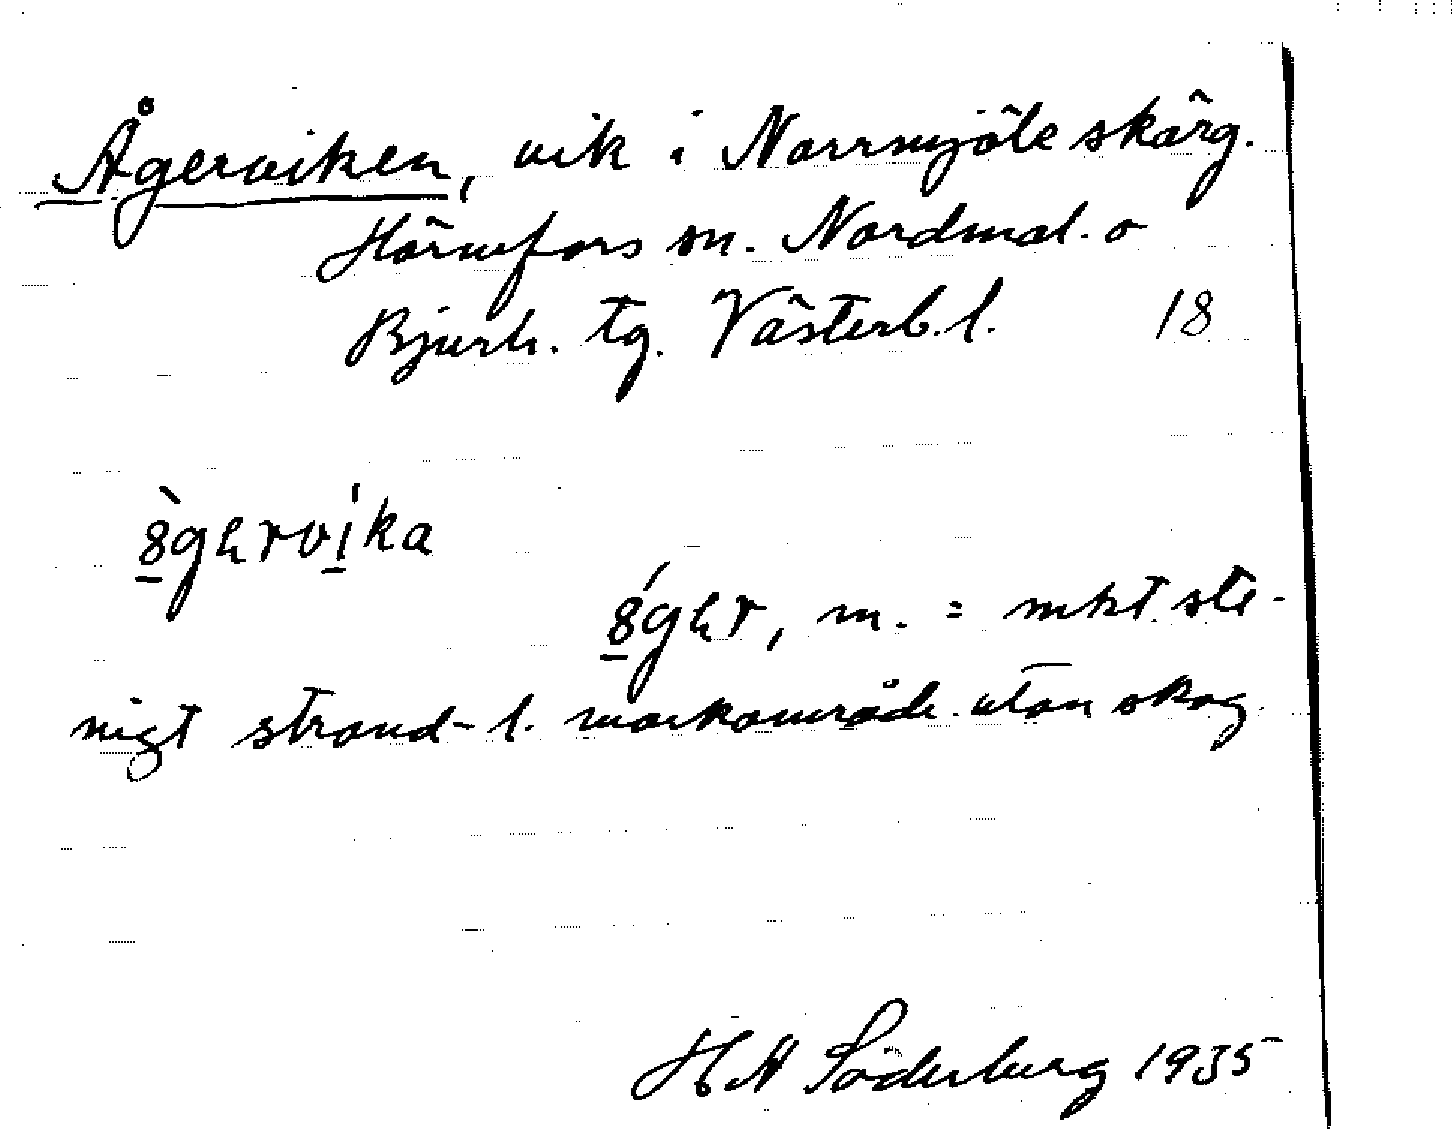 Ågerviken, vik i Norrmjöle skärg.
Hörnefors sn. Nordmal. o
Bjurh. tg. Västerb. l. 18
8̱̀gꞕrvi̱̍ka
8̱́gꞕr, m. = mkt ste-
nigt strand- l. markområde utan skog
H N Söderberg 1935